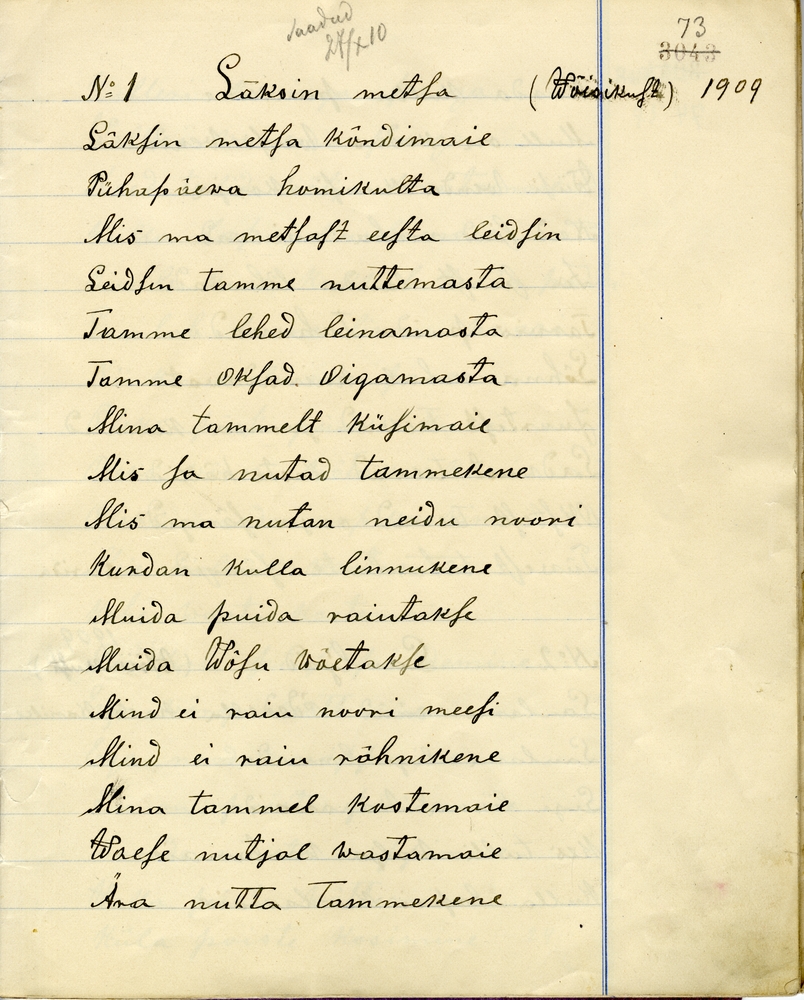 saadud
27/X 10
73
3043
№ 1 Läksin metsa (Wõisikust) 1909
Läksin metsa kõndimaie
Pühapäewa homikulta
Mis ma metsast eesta leidsin
Leidsin tamme nuttemasta
Tamme lehed leinamasta
Tamme oksad. oigamasta
Mina tammelt küsimaie
Mis sa nutad tammekene
Mis ma nutan neidu noori
Kurdan kulla linnukene
Muida puida raiutakse
Muida Wõsu wõetakse
Mind ei raiu noori meesi
Mind ei raiu rähnikene
Mina tammel kostemaie
Waese nutjal wastamaie
Ära nutta Tammekene